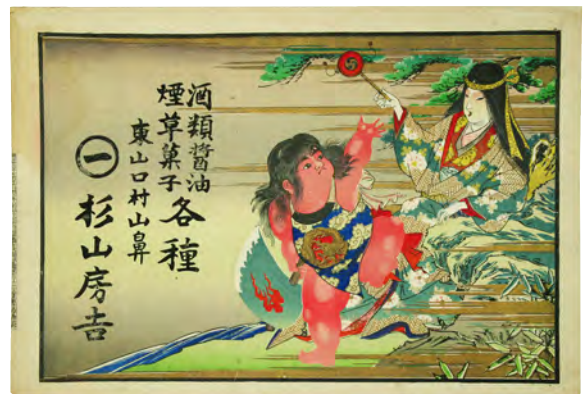 酒類醤油
煙草菓子各種
東山口村山鼻
㊀杉山房吉